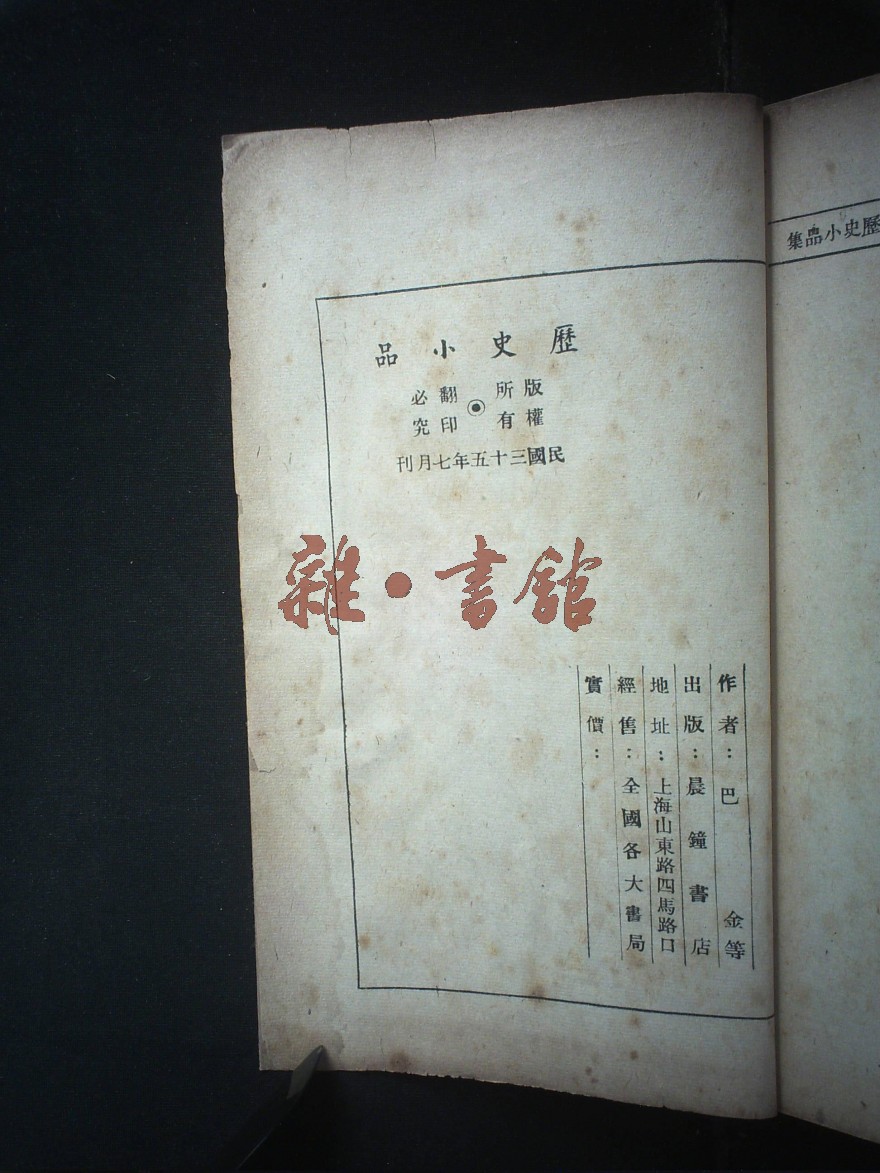 歷史小品集
歷史小品
版權所有
翻印必究
民國三十五年七月刊
雜•書館
作者：巴金等
出版：晨鐘書店
地址：上海山東路四馬路口
經售：全國各大書局
實價：